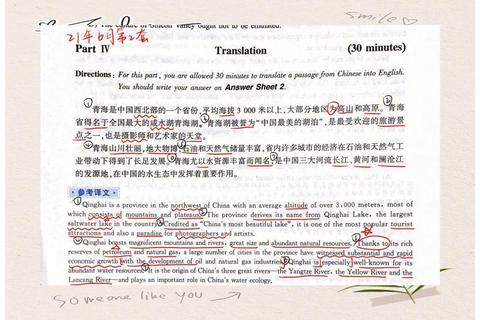 The culture of Silicon Valley ought not to be emulated.
smile♡
21年6月第2套
Part IV Translation (30 minutes)
Directions: For this part, you are allowed 30 minutes to translate a passage from Chinese into English.
You should write your answer on Answer Sheet 2.
①青海是中国西北部的一个省份,平均海拔3 000米以上,大部分地区为高山和高原。②青海
省得名于全国最大的咸水湖青海湖。③青海湖被誉为“中国最美的湖泊”,是最受欢迎的旅游景
点之一,也是摄影师和艺术家的天堂。
④青海山川壮丽,地大物博。⑤石油和天然气储量丰富,省内许多城市的经济在石油和天然气工
业带动下得到了长足发展。⑥青海尤以水资源丰富而闻名,是中国三大河流长江、黄河和澜沧江
的发源地,在中国的水生态中发挥着重要作用。
参考译文
①Qinghai is a province in the northwest of China with an average altitude of over 3,000 meters, most of
which consists of mountains and plateaus. ②The province derives its name from Qinghai Lake, the largest
saltwater lake in the country. ③Credited as “China's most beautiful lake”, it is one of the most popular tourist
attractions and also a paradise for photographers and artists.
④Qinghai boasts magnificent mountains and rivers, great size and abundant natural resources. ⑤Thanks to its rich
reserves of petroleum and natural gas, a large number of cities in the province have witnessed substantial and rapid
economic growth with the development of oil and natural gas industries. ⑥Qinghai is especially well-known for its
abundant water resources. It is the origin of China's three great rivers—the Yangtze River, the Yellow River and the
Lancang River—and plays an important role in China's water ecology.
someone like you →